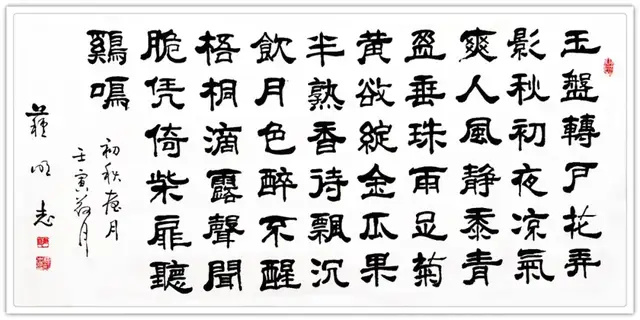 玉盤轉戶花弄
影秋初夜涼氣
爽人風靜黍青
盈垂珠雨足菊
黄欲綻金瓜果
半熟香待飄沉
飲月色醉不醒
梧桐滴露聲聞
脆凭倚柴扉聽
鷄鳴
初秋月
壬寅荷月
蘇明志